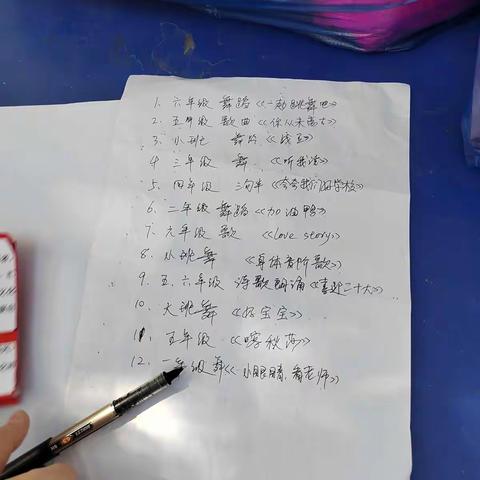 1. 六年级 舞蹈《一起跳舞吧》
2. 五年级 歌曲《你从未离去》
3. 小班 舞蹈《
4. 三年级 舞 《听我说》
5. 四年级 三句半《夸夸我们的好学校》
6. 二年级 舞蹈《加油鸭》
7. 六年级 歌 《love story》
8. 小班舞 《身体音阶歌》
9. 五、六年级 诗歌朗诵《喜迎二十大》
10. 大班舞 《好宝宝》
11. 五年级 《喀秋莎》
12. 一年级 舞《小眼睛,看老师》